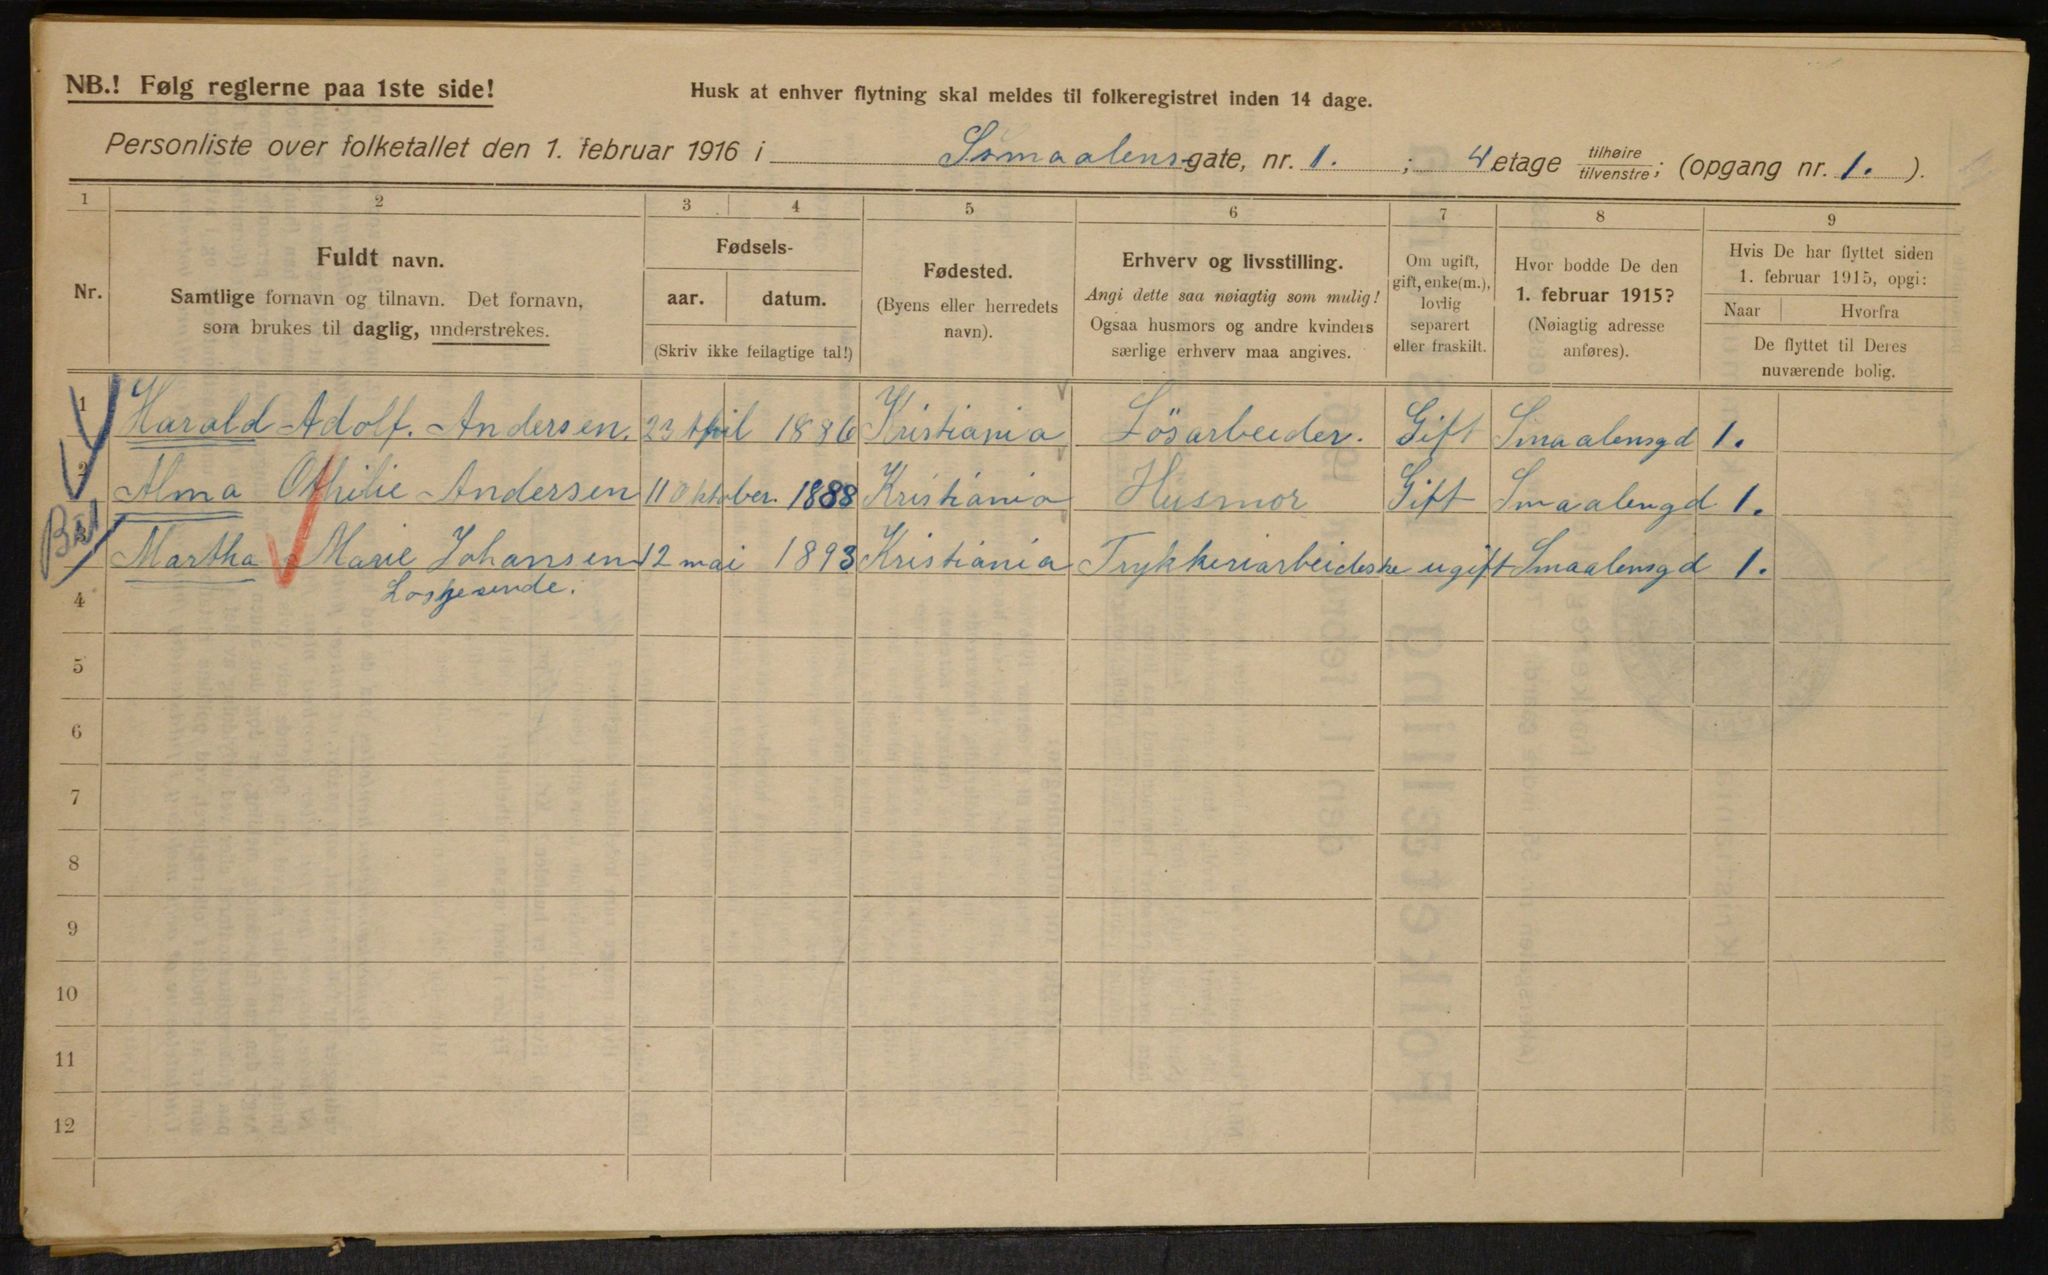 NB.! Følg reglerne paa 1ste side!
Husk at enhver flytning skal meldes til folkeregistret inden 14 dage.
Personliste over folketallet den 1. februar 1916 i Smaalens-gate, nr. 1. ; 4 etage tilhøire/tilvenstre; (opgang nr. 1. ).
1 2 3 4 5 6 7 8 9
Nr.
Fuldt navn.
Samtlige fornavn og tilnavn. Det fornavn,
som brukes til daglig, understrekes.
Fødsels-
aar. datum.
(Skriv ikke feilagtige tal!)
Fødested.
(Byens eller herredets
navn).
Erhverv og livsstilling.
Angi dette saa nøiagtig som mulig!
Ogsaa husmors og andre kvinders
særlige erhverv maa angives.
Om ugift,
gift, enke(m.),
lovlig
separert
eller fraskilt.
Hvor bodde De den
1. februar 1915?
(Nøiagtig adresse
anføres).
Hvis De har flyttet siden
1. februar 1915, opgi:
Naar Hvorfra
De flyttet til Deres
nuværende bolig.
1 Harald Adolf. Andersen. 23 April 1886 Kristiania Løsarbeider. Gift Smaalensgd 1.
2 Alma Othilie Andersen 11 Oktober. 1888 Kristiania Husmor Gift Smaalengd 1.
3 Martha Marie Johansen 12 mai 1893 Kristiania Trykkeriarbeideske ugift Smaalensgd 1.
4 Losjerende.
5
6
7
8
9
10
11
12